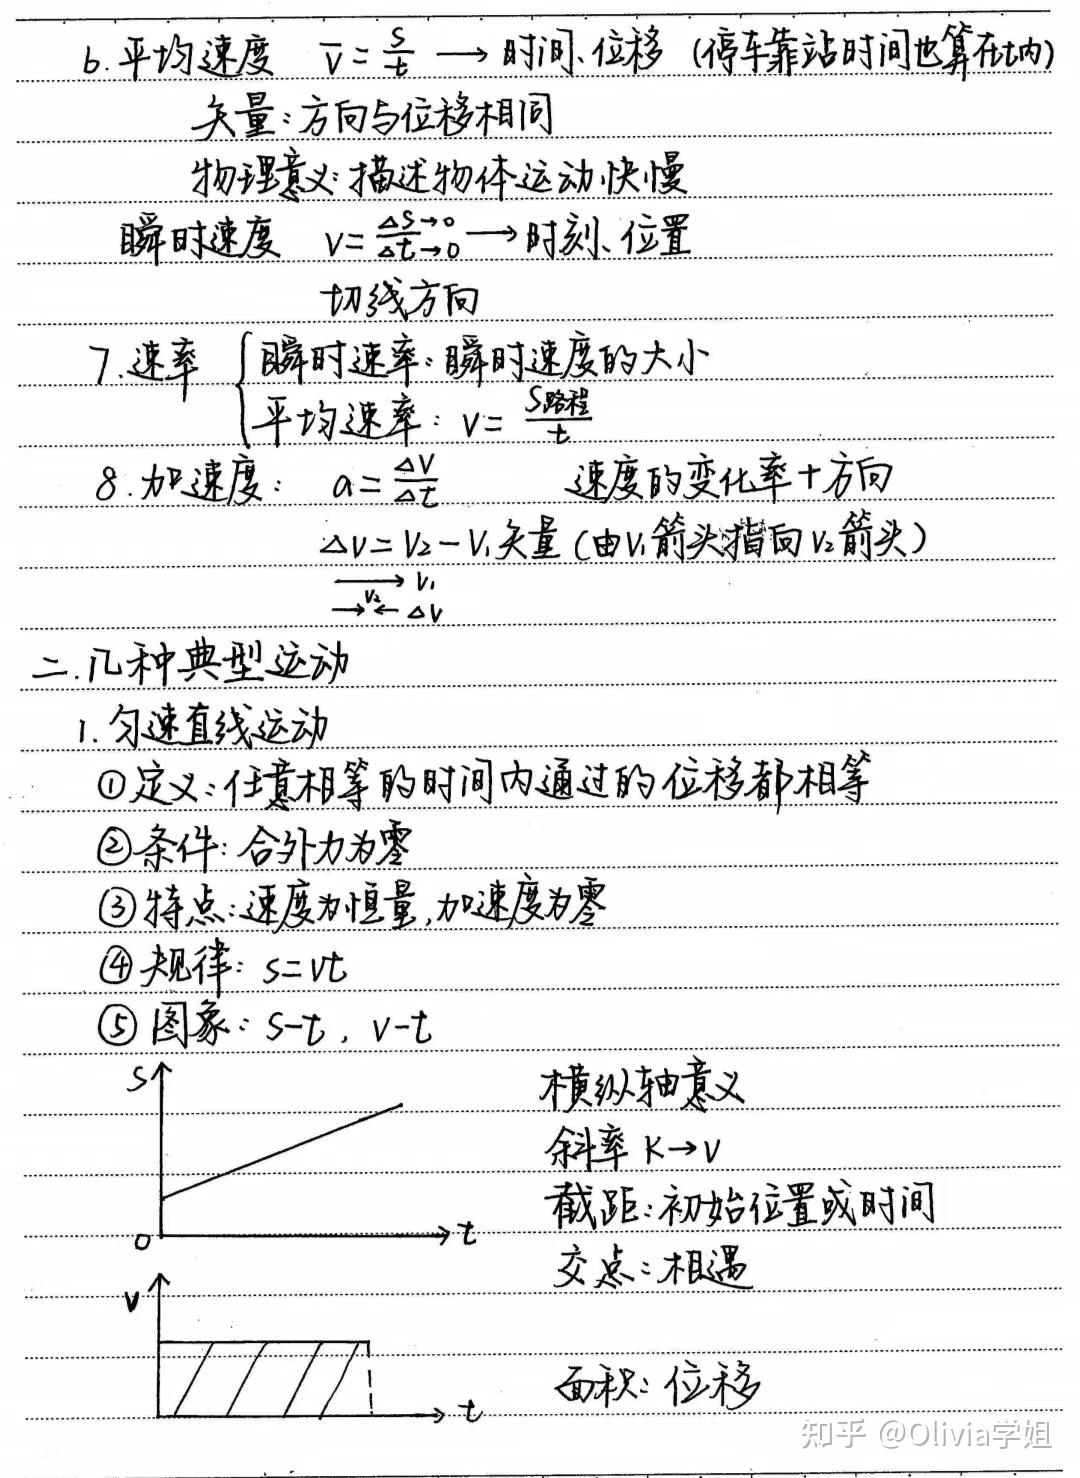 6.平均速度 v̄=s/t→时间、位移（停车靠站时间也算在t内）
矢量:方向与位移相同
物理意义:描述物体运动快慢
瞬时速度 v=Δs→0/Δt→0→时刻、位置
切线方向
7.速率 { 瞬时速率:瞬时速度的大小
平均速率: v=s路程/t
8.加速度: a=Δv/Δt 速度的变化率+方向
Δv=v₂-v₁矢量(由v₁箭头指向v₂箭头)
→ v₁
v₂
→← Δv
二.几种典型运动
1.匀速直线运动
①定义:任意相等的时间内通过的位移都相等
②条件:合外力为零
③特点:速度为恒量,加速度为零
④规律: s=vt
⑤图象: s-t, v-t
s
横纵轴意义
斜率 K→v
截距:初始位置或时间
0 t
交点:相遇
v
面积:位移
t
知乎 @Olivia学姐